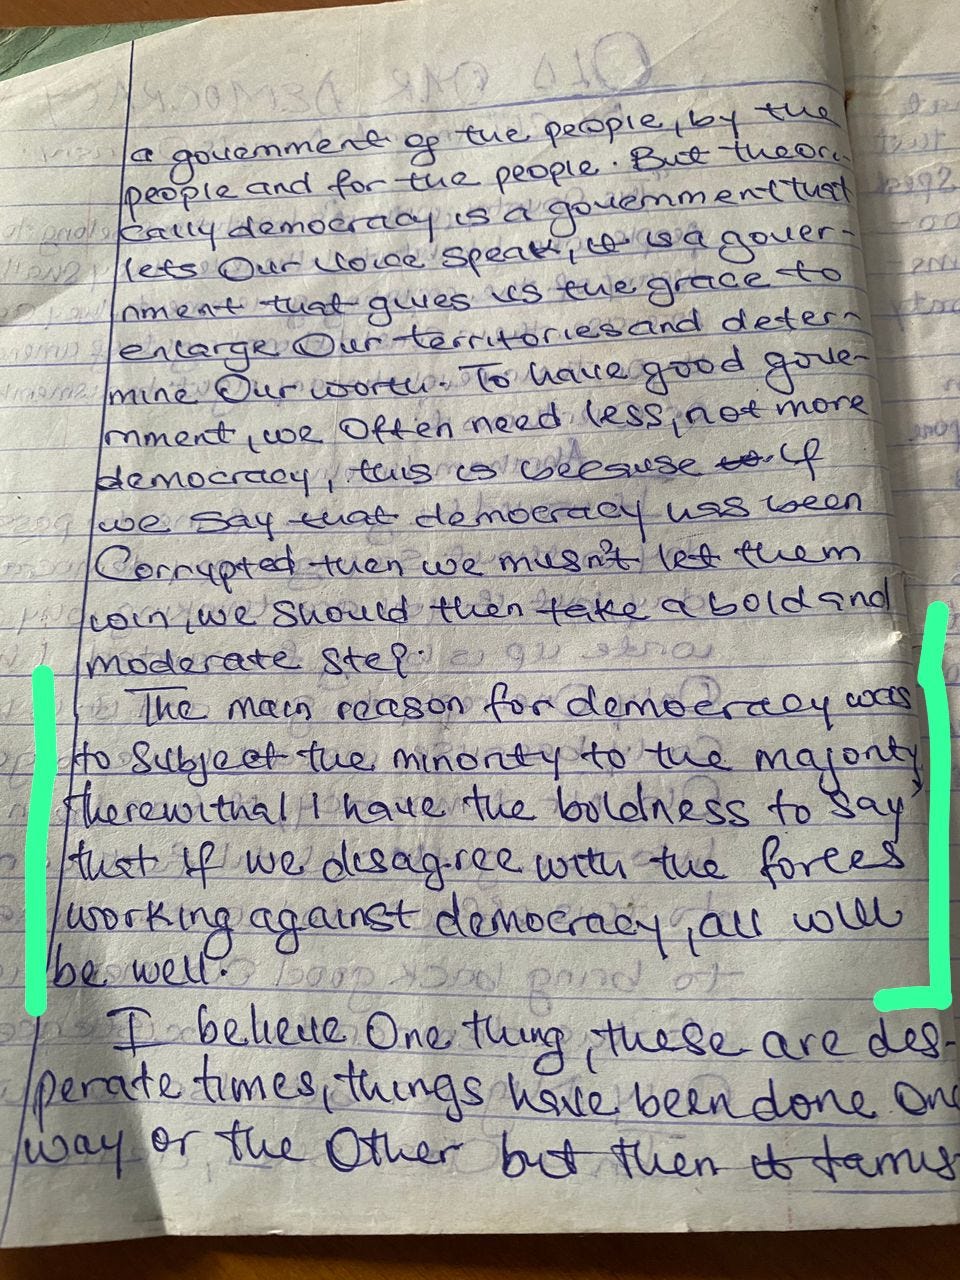 a government of the people, by the
people and for the people. But theori-
cally democracy is a government that
lets Our voice speak, it is a gover-
nment that gives us the grace to
enlarge Our territories and deter-
mine Our worth. To have good gove-
rnment, we Often need less, not more
democracy, this is because if
we say that democracy has been
Corrupted then we musn't let them
win, we should then take a bold and
moderate step.
The main reason for democracy was
to Subject the minority to the majority,
therewithal I have the boldness to say
that if we disagree with the forces
working against democracy, all will
be well.
I believe One thing, these are des-
perate times, things have been done One
way or the Other but then